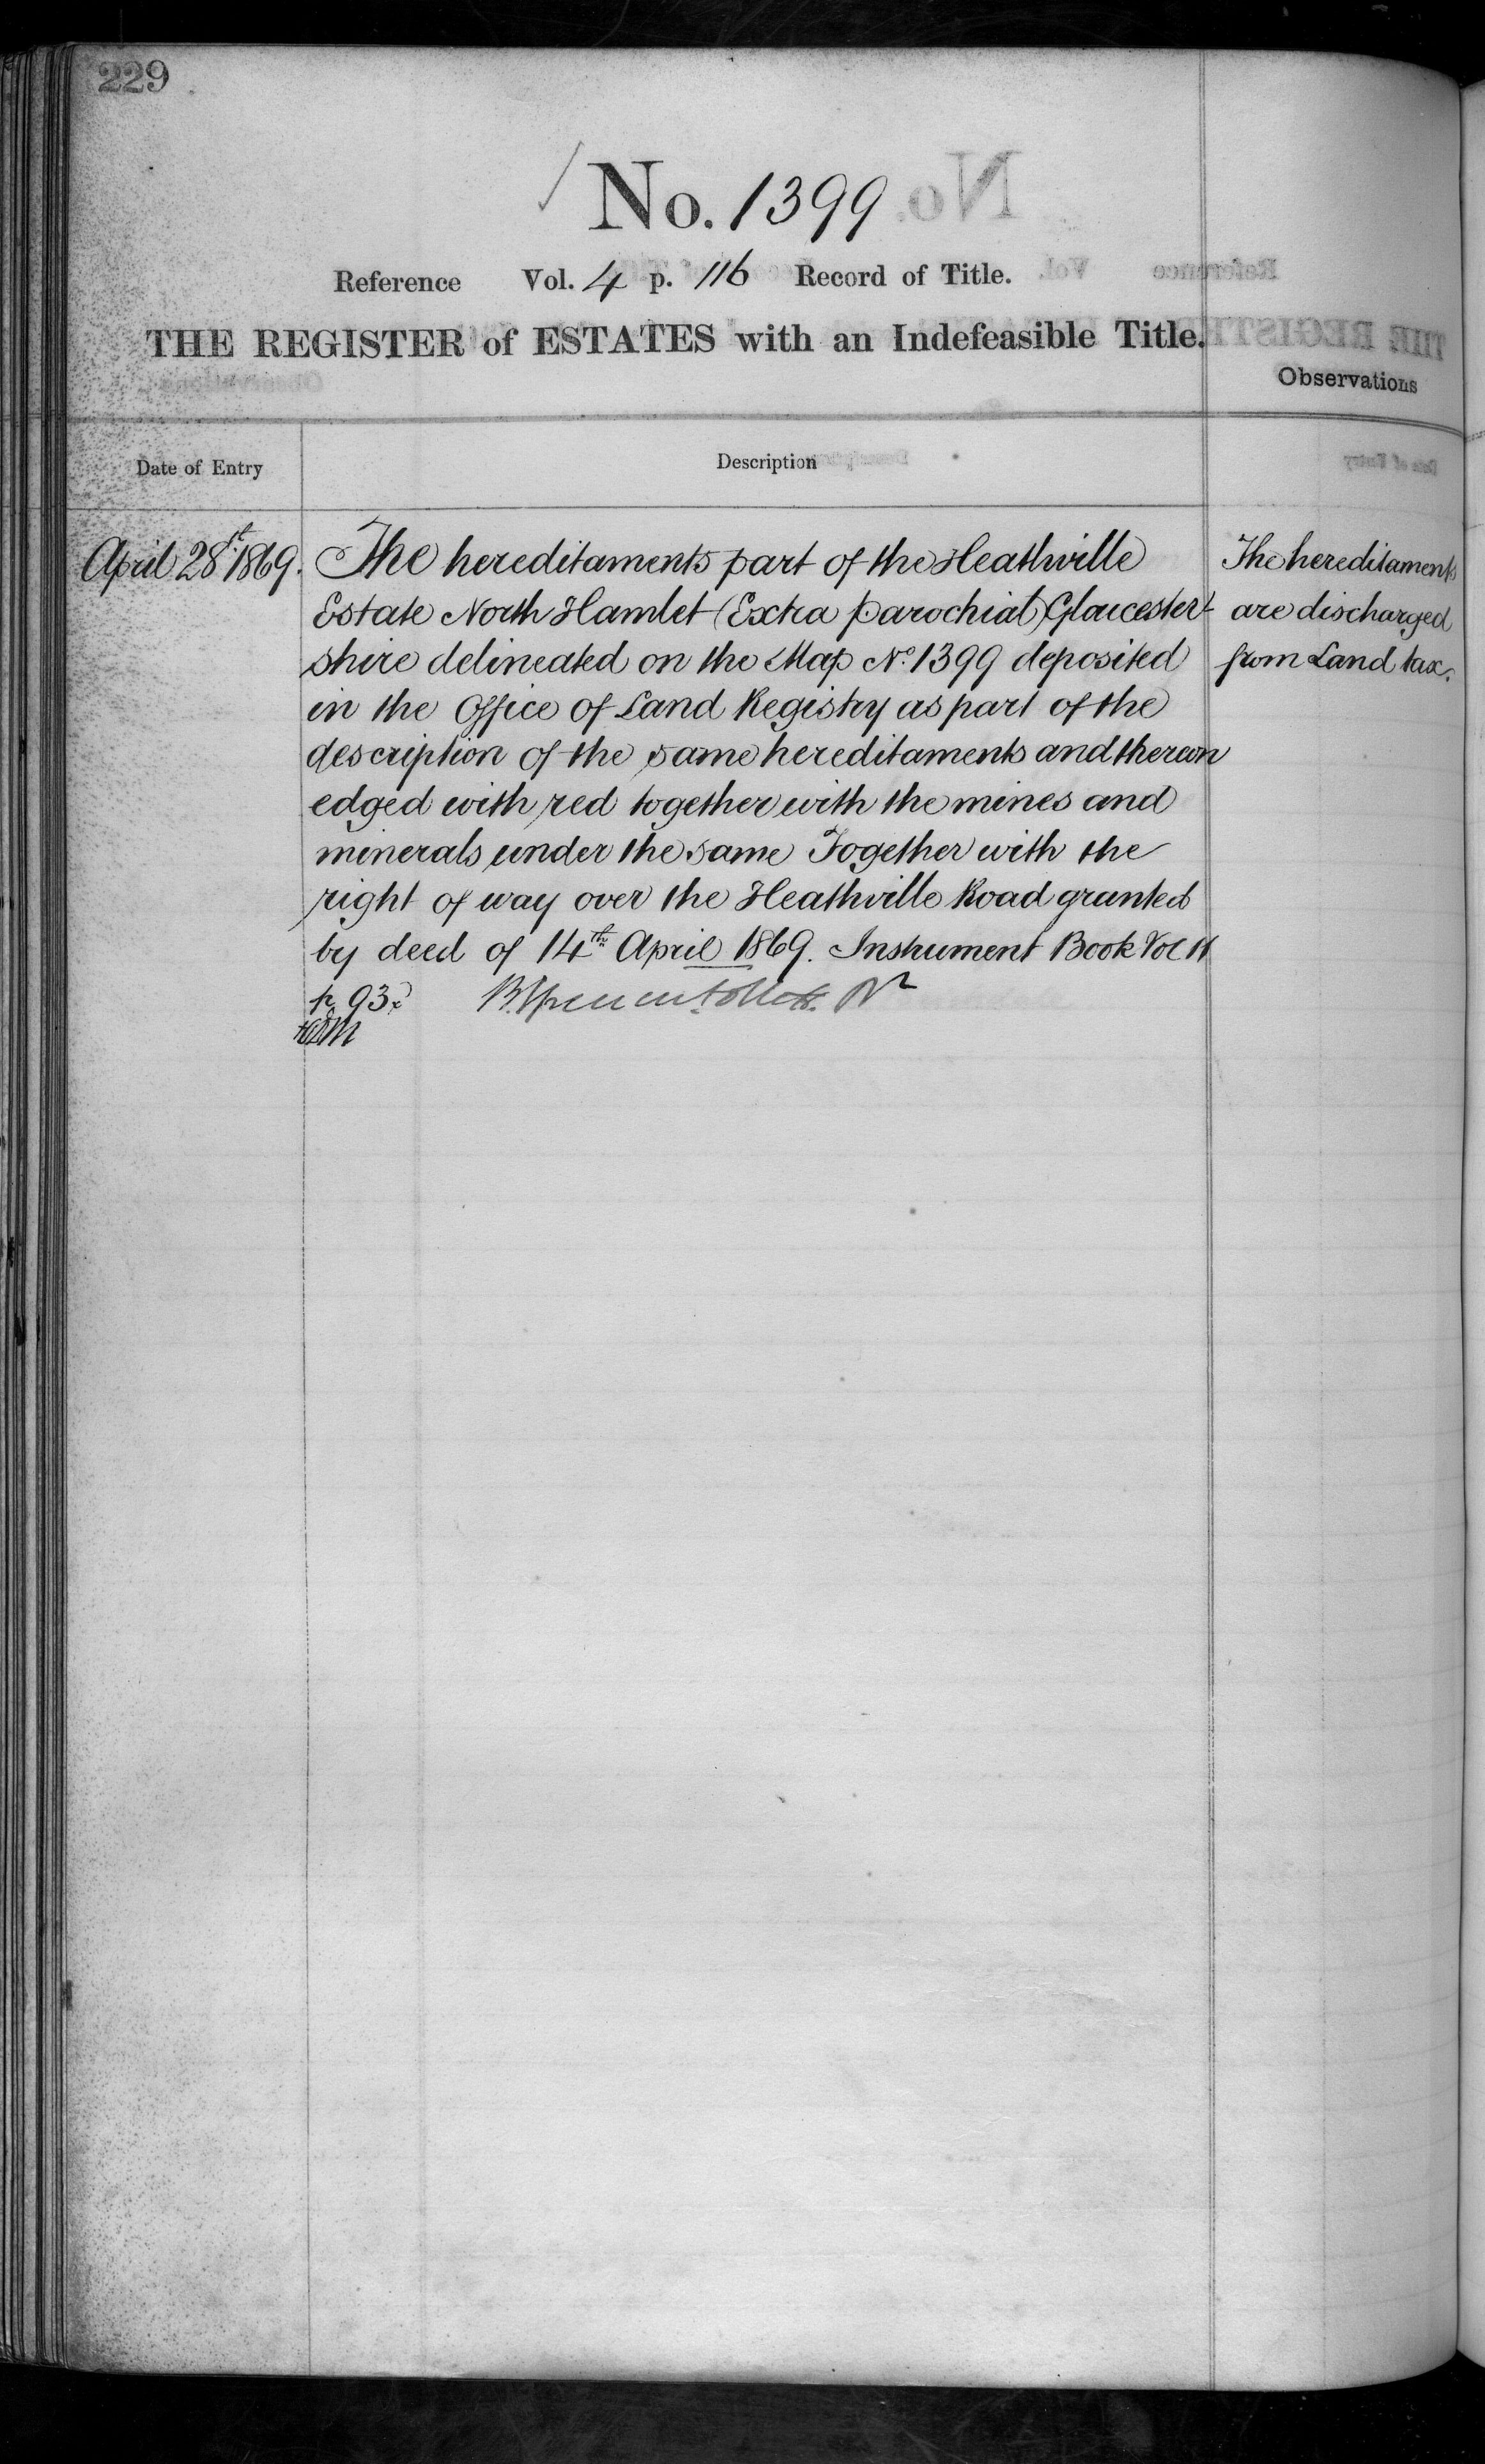 229
No. 1399
Reference Vol. 4 p. 116 Record of Title.
THE REGISTER of ESTATES with an Indefeasible Title.
Observations
Date of Entry
Description
April 28th 1869.
The hereditaments part of the Heathville
Estate North Hamlet (Extra parochial) Gloucester-
shire delineated on the Map No. 1399 deposited
in the Office of Land Registry as part of the
description of the same hereditaments and thereon
edged with red together with the mines and
minerals under the same Together with the
right of way over the Heathville Road granted
by deed of 14th April 1869. Instrument Book Vol 11
p. 93.
The hereditaments
are discharged
from Land tax.